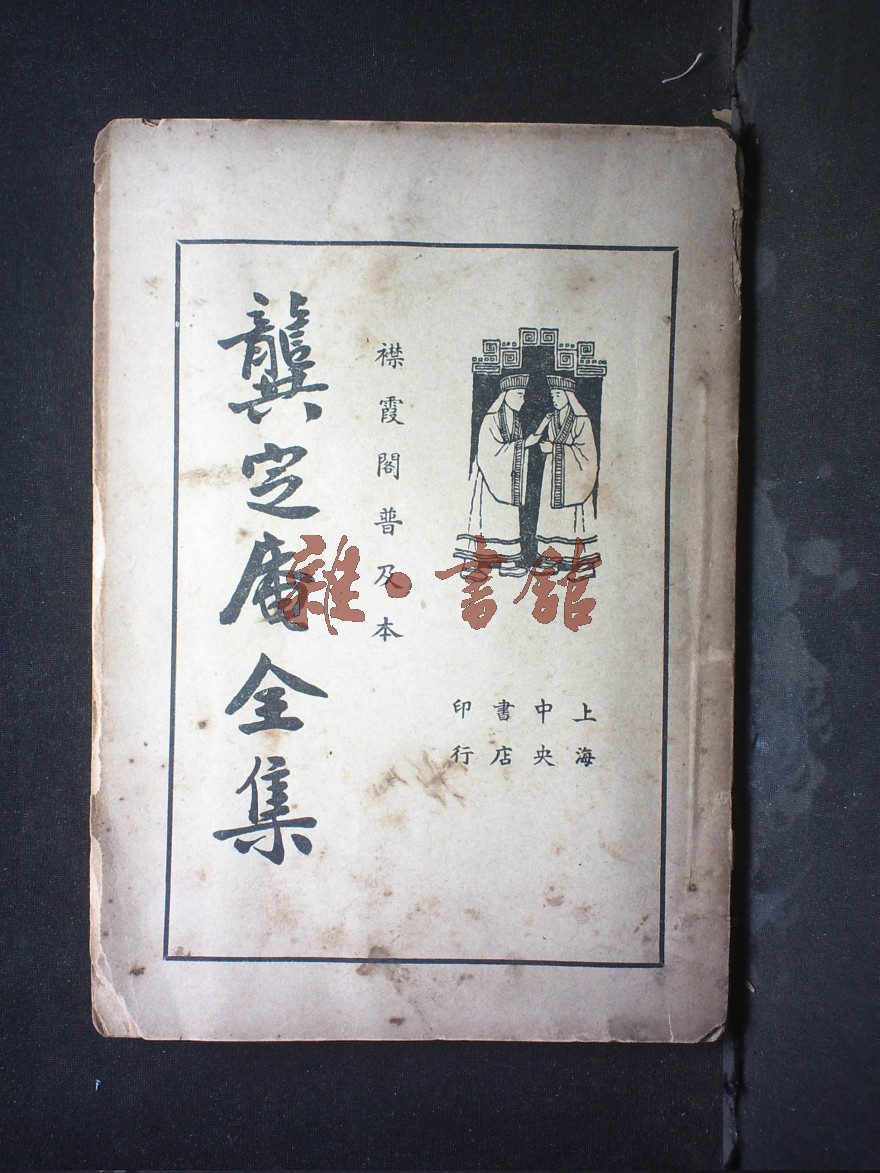 上海
中央
書店
印行
襟霞閣普及本
龔定庵全集
雜·書館